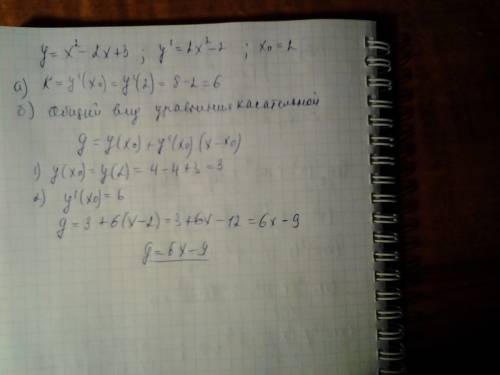 y = x² - 2x + 3 ; y' = 2x² - 2 ; x₀ = 2
а) K = y'(x₀) = y'(2) = 8 - 2 = 6
б) Общий вид уравнения касательной
y = y(x₀) + y'(x₀)(x - x₀)
1) y(x₀) = y(2) = 4 - 4 + 3 = 3
2) y'(x₀) = 6
y = 3 + 6(x - 2) = 3 + 6x - 12 = 6x - 9
y = 6x - 9